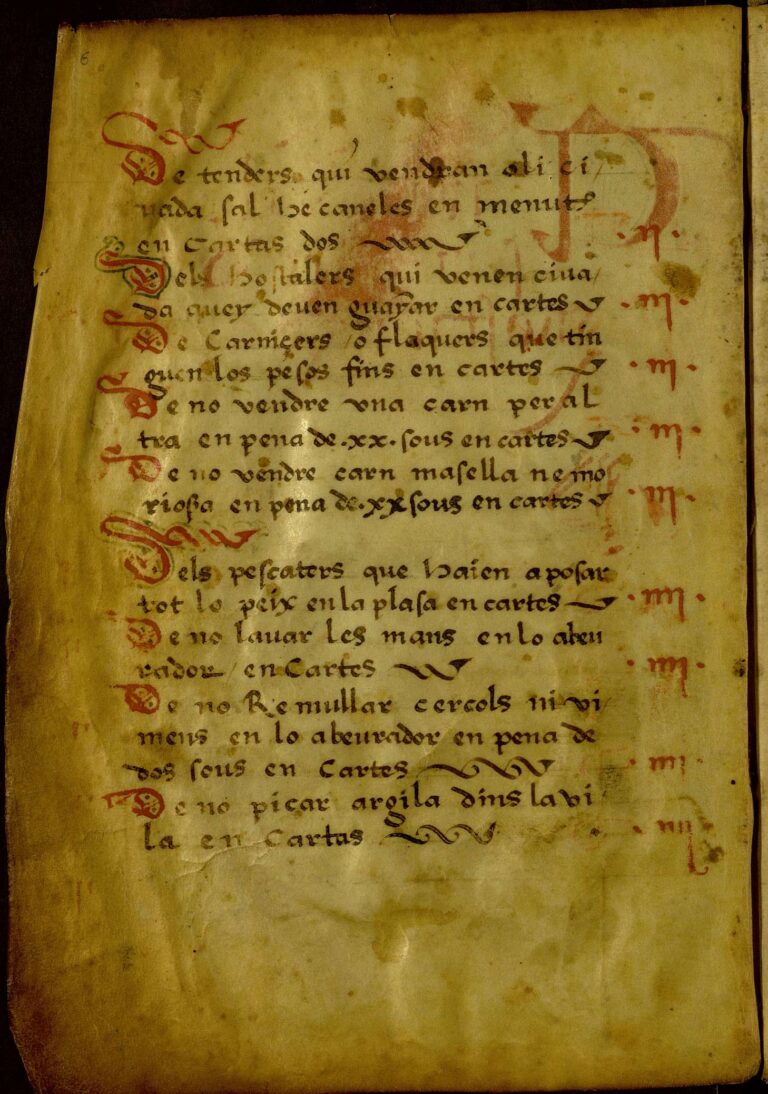 6
De tenders qui vendran oli ci/
uada sal he caneles en menut
en Cartas dos .ii.
Dels hostalers qui venen ciua/
da quey deuen guayar en cartes .iii.
De Carniçers /o flaquers que tin
guen los pesos fins en cartes .iii.
De no vendre vna carn per al
tra en pena de .xx. sous en cartes .iii.
De no vendre carn masella ne mo
riosa en pena de .xx sous en cartes .iii.
Dels pescaters que haien a posar
tot lo peix en la plasa en cartes .iiii.
De no lauar les mans en lo abeu
rador / en Cartes .iiii.
De no Remullar cercols ni vi/
mens en lo abeurador en pena de
dos sous en Cartes .iiii.
De no picar argila dins la vi/
la en Cartas .iiii.